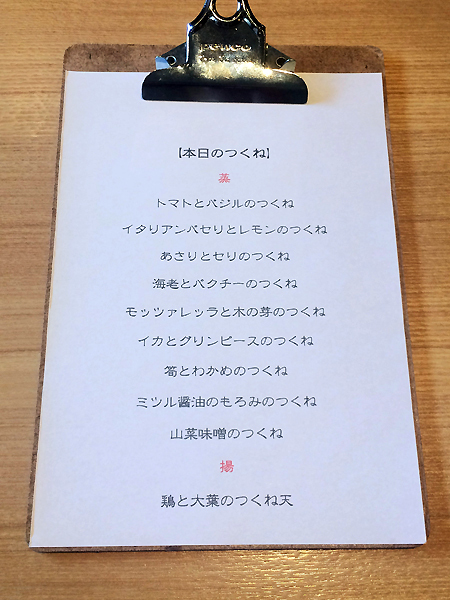 penco
【本日のつくね】
蒸
トマトとバジルのつくね
イタリアンパセリとレモンのつくね
あさりとセリのつくね
海老とパクチーのつくね
モッツァレッラと木の芽のつくね
イカとグリンピースのつくね
筍とわかめのつくね
ミツル醤油のもろみのつくね
山菜味噌のつくね
揚
鶏と大葉のつくね天